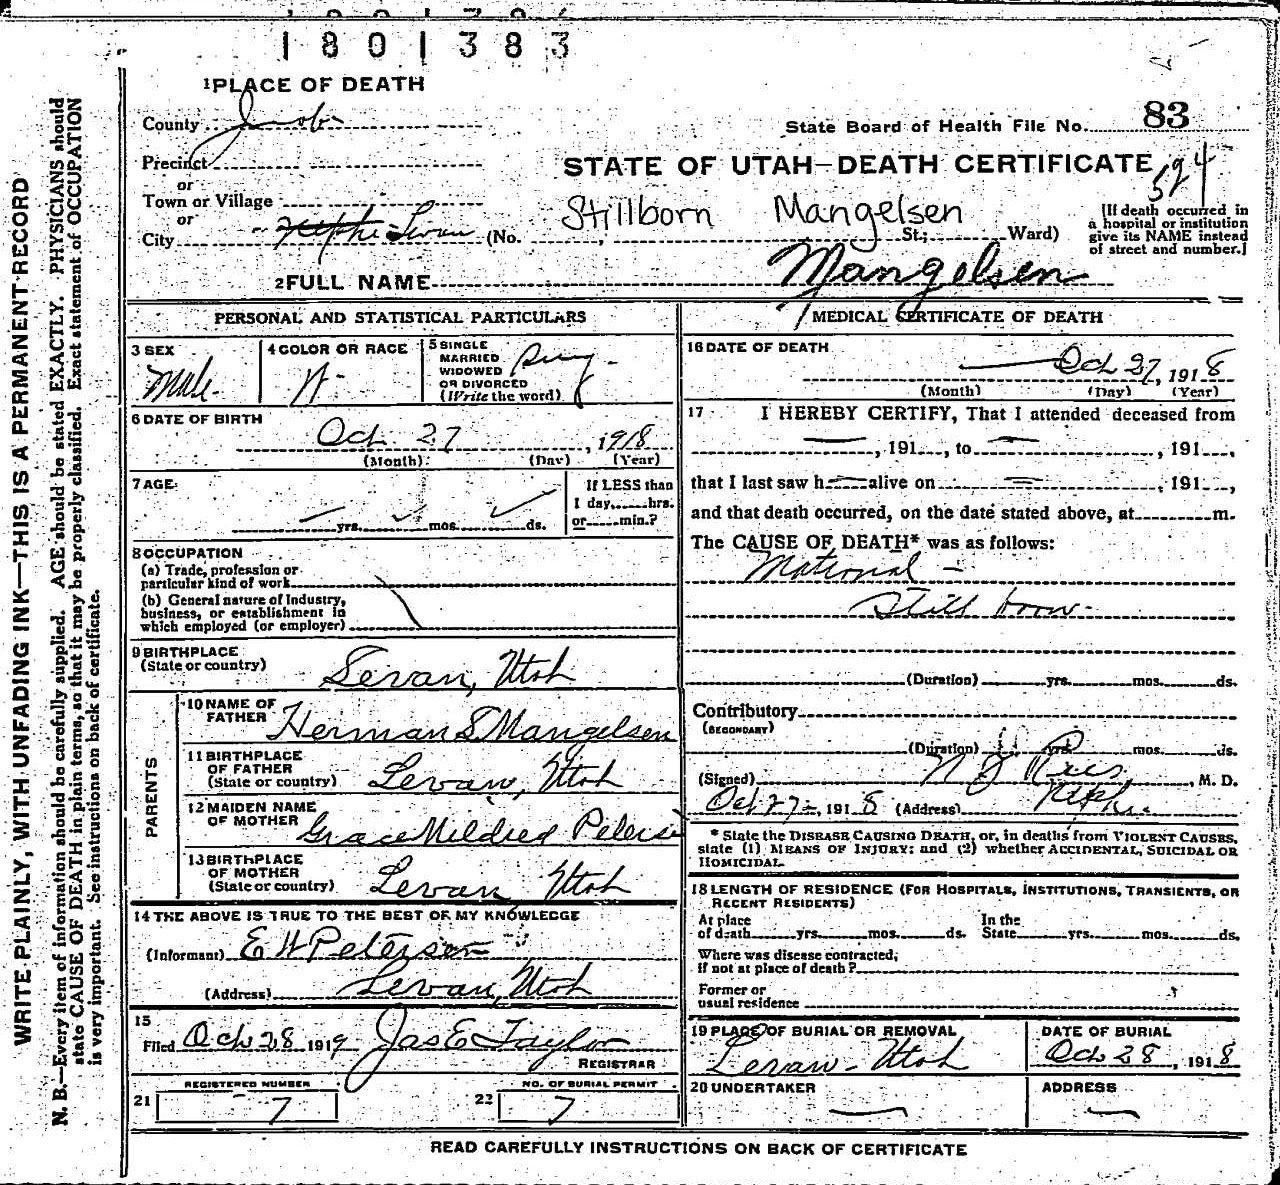 1801383
1 PLACE OF DEATH
County Juab
State Board of Health File No. 83
Precinct
STATE OF UTAH—DEATH CERTIFICATE
524
or
Town or Village
or
Stillborn Mangelsen
City Nephi Levan (No. St.; Ward)
[If death occurred in
a hospital or institution
give its NAME instead
of street and number.]
2 FULL NAME Mangelsen
PERSONAL AND STATISTICAL PARTICULARS
3 SEX
Male
4 COLOR OR RACE
W
5 SINGLE
MARRIED
WIDOWED
OR DIVORCED
(Write the word)
Sing
6 DATE OF BIRTH
Oct. 27, 1918
(Month) (Day) (Year)
7 AGE
yrs. mos. ds.
If LESS than
1 day,......hrs.
or......min.?
8 OCCUPATION
(a) Trade, profession or
particular kind of work
(b) General nature of Industry,
business, or establishment in
which employed (or employer)
9 BIRTHPLACE
(State or country)
Levan, Utah
PARENTS
10 NAME OF
FATHER
Herman S Mangelsen
11 BIRTHPLACE
OF FATHER
(State or country)
Levan, Utah
12 MAIDEN NAME
OF MOTHER
Grace Mildred
13 BIRTHPLACE
OF MOTHER
(State or country)
Levan, Utah
14 THE ABOVE IS TRUE TO THE BEST OF MY KNOWLEDGE
(Informant) E H Petersen
(Address) Levan, Utah
15
Filed Oct 28 1919 Jas E Taylor
REGISTRAR
REGISTERED NUMBER
21 7
NO. OF BURIAL PERMIT
22 7
MEDICAL CERTIFICATE OF DEATH
16 DATE OF DEATH
Oct 27, 1918
(Month) (Day) (Year)
17 I HEREBY CERTIFY, That I attended deceased from
, 191 , to , 191 ,
that I last saw h alive on , 191 ,
and that death occurred, on the date stated above, at m.
The CAUSE OF DEATH* was as follows:
Still born
(Duration) yrs. mos. ds.
Contributory
(SECONDARY)
(Duration) yrs. mos. ds.
(Signed) Rees, M. D.
Oct 27, 1918 (Address) Nephi
* State the DISEASE CAUSING DEATH, or, in deaths from VIOLENT CAUSES,
state (1) MEANS OF INJURY; and (2) whether ACCIDENTAL, SUICIDAL OR
HOMICIDAL.
18 LENGTH OF RESIDENCE (FOR HOSPITALS, INSTITUTIONS, TRANSIENTS, OR
RECENT RESIDENTS)
At place
of death yrs. mos. ds.
In the
State yrs. mos. ds.
Where was disease contracted,
if not at place of death?
Former or
usual residence
19 PLACE OF BURIAL OR REMOVAL
Levan - Utah
DATE OF BURIAL
Oct 28, 1918
20 UNDERTAKER
ADDRESS
READ CAREFULLY INSTRUCTIONS ON BACK OF CERTIFICATE
WRITE PLAINLY, WITH UNFADING INK—THIS IS A PERMANENT RECORD
N. B.—Every item of information should be carefully supplied. AGE should be stated EXACTLY. PHYSICIANS should
state CAUSE OF DEATH in plain terms, so that it may be properly classified. Exact statement of OCCUPATION
is very important. See instructions on back of certificate.